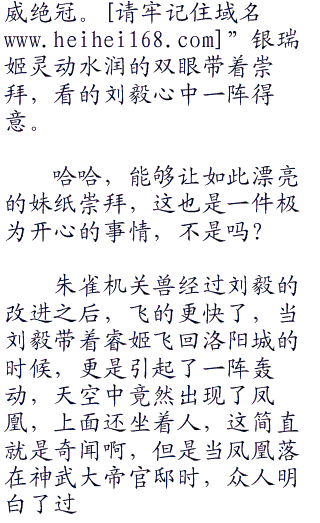 威绝冠。[请牢记住域名
www.heihei168.com]”银瑞
姬灵动水润的双眼带着崇
拜，看的刘毅心中一阵得
意。
哈哈，能够让如此漂亮
的妹纸崇拜，这也是一件极
为开心的事情，不是吗？
朱雀机关兽经过刘毅的
改进之后，飞的更快了，当
刘毅带着睿姬飞回洛阳城的
时候，更是引起了一阵轰
动，天空中竟然出现了凤
凰，上面还坐着人，这简直
就是奇闻啊，但是当凤凰落
在神武大帝官邸时，众人明
白了过